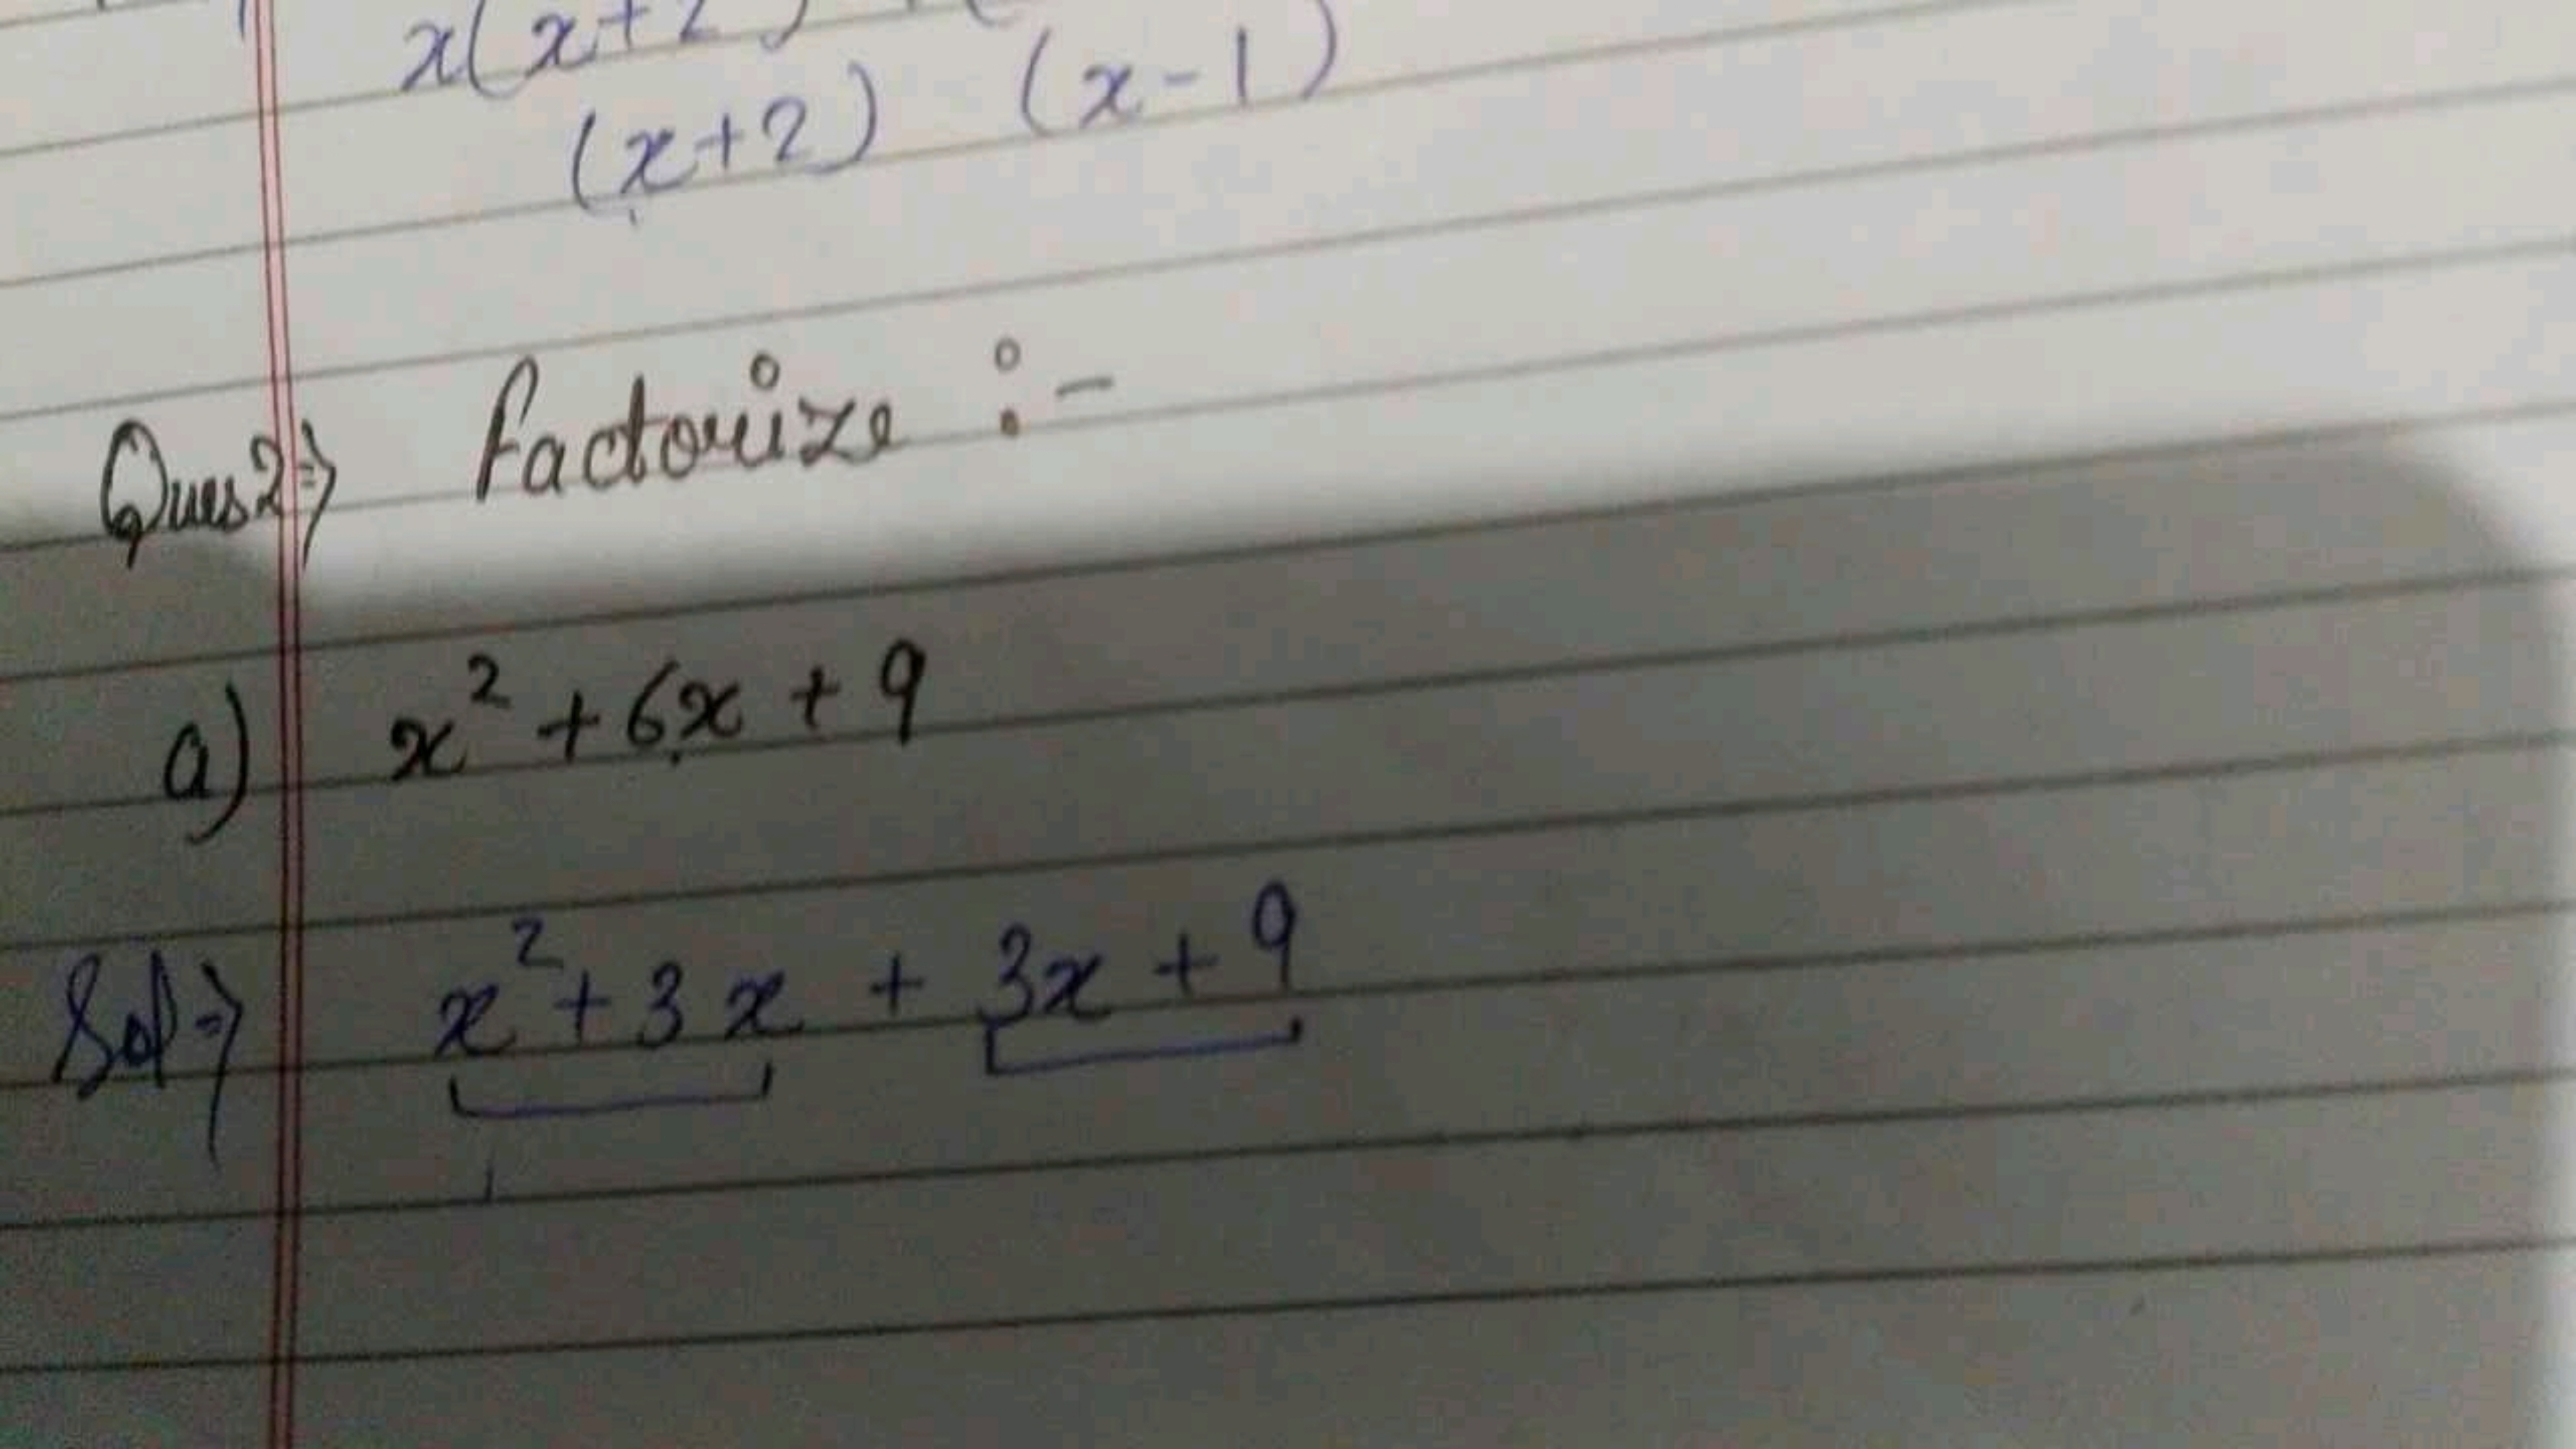 x(x+2)
(x+2) (x-1)
Ques2⇒ Factorize :-
a) x² + 6x + 9
Sol⇒ x² + 3x + 3x + 9